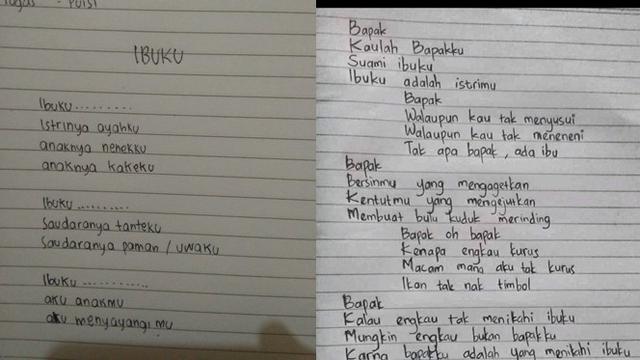 Tugas - PUISI
IBUKU
Ibuku.........
Istrinya ayahku
anaknya nenekku
anaknya kakeku
Ibuku..........
Saudaranya tanteku
Saudaranya paman / uwaku
Ibuku............
aku anakmu
aku menyayangi mu
Bapak
Kaulah Bapakku
Suami ibuku
Ibuku adalah istrimu
Bapak
Walaupun kau tak menyusui
Walaupun kau tak meneneni
Tak apa bapak, ada ibu
Bapak
Bersinmu yang mengagetkan
Kentutmu yang mengejutkan
Membuat bulu kuduk merinding
Bapak oh bapak
Kenapa engkau kurus
Macam mana aku tak kurus
Ikan tak nak timbol
Bapak
Kalau engkau tak menikahi ibuku
Mungkin engkau bukan bapakku
Karna bapakku adalah yang menikahi ibuku